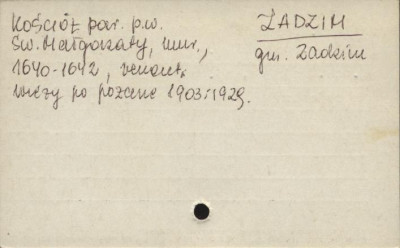 ZADZIM
gm. Zadzim
Kościół par. p.w.
Św. Małgorzaty, mur.,
1640-1642, remont.
wieży po pożarze 1903, 1929.